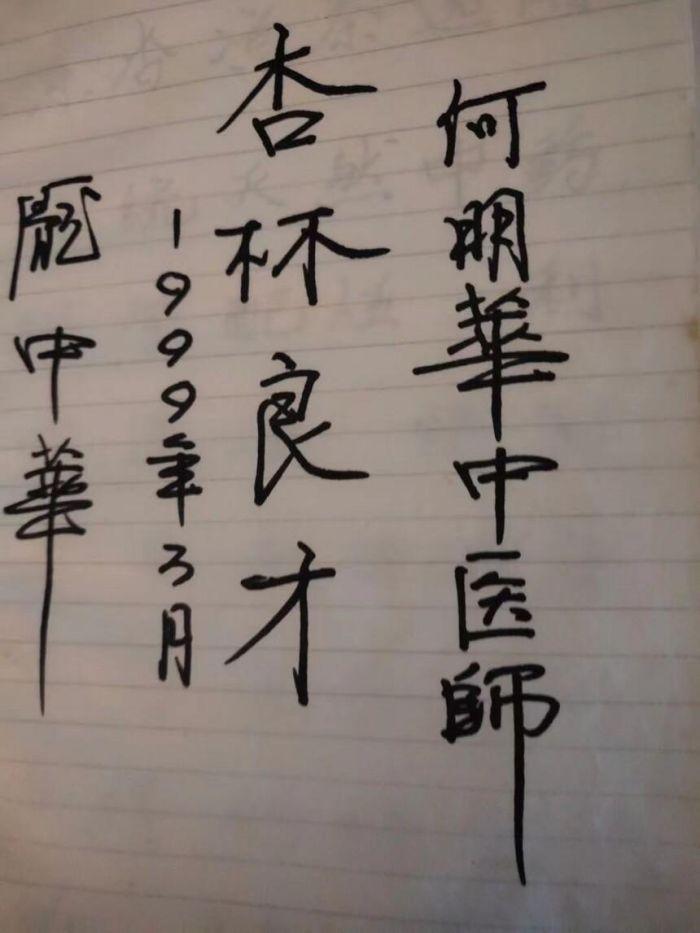 何明華中医師
杏林良才
1999年3月
龐中華